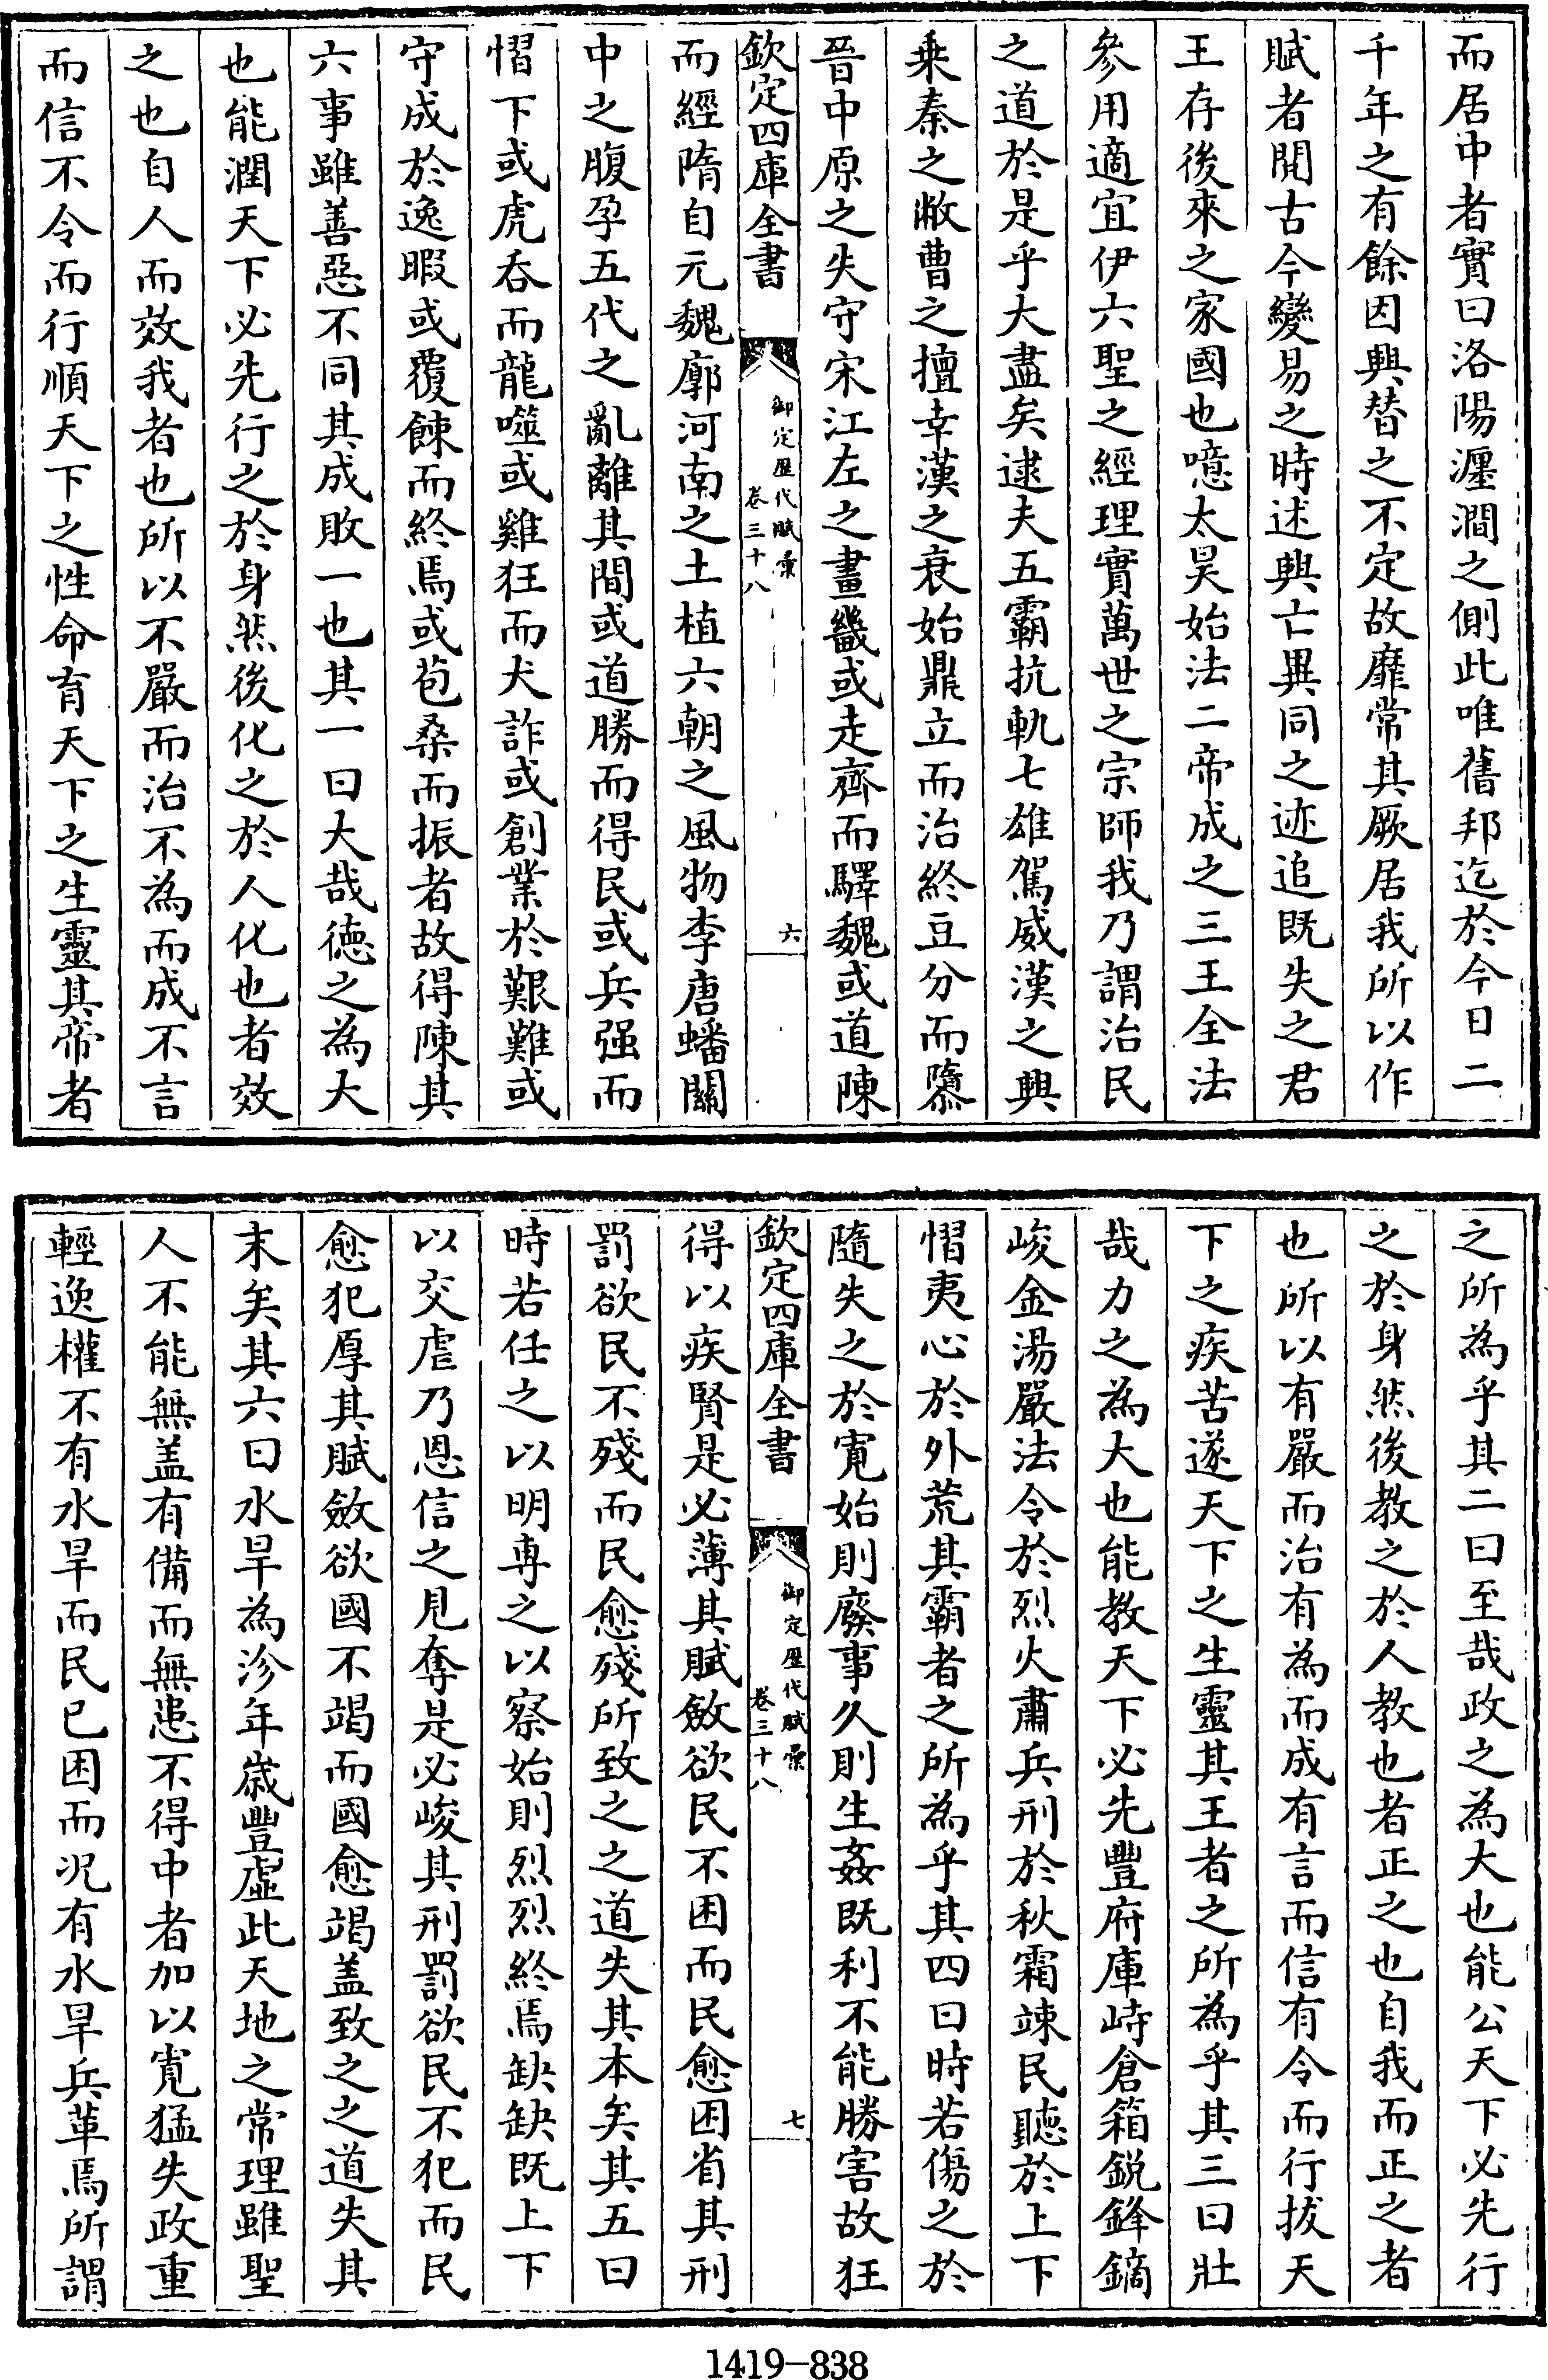 而居中者實曰洛陽瀍澗之側此唯舊邦迄於今日二
千年之有餘因興替之不定故靡常其厥居我所以作
賦者閱古今變易之時述興亡異同之迹追既失之君
王存後來之家國也噫太昊始法二帝成之三王全法
參用適宜伊六聖之經理實萬世之宗師我乃謂治民
之道於是乎大盡矣逮夫五霸抗軌七雄駕威漢之興
乗秦之敝曹之擅幸漢之衰始鼎立而治終豆分而隳
晉中原之失守宋江左之畫畿或走齊而驛魏或道陳
欽定四庫全書
御定歷代賦彙
卷三十八
六
而經隋自元魏廓河南之土植六朝之風物李唐蟠關
中之腹孕五代之亂離其間或道勝而得民或兵强而
慴下或虎吞而龍噬或雞狂而犬詐或創業於艱難或
守成於逸暇或覆餗而終焉或苞桑而振者故得陳其
六事雖善惡不同其成敗一也其一曰大哉德之為大
也能潤天下必先行之於身然後化之於人化也者效
之也自人而效我者也所以不嚴而治不為而成不言
而信不令而行順天下之性命育天下之生靈其帝者
之所為乎其二曰至哉政之為大也能公天下必先行
之於身然後教之於人教也者正之也自我而正之者
也所以有嚴而治有為而成有言而信有令而行拔天
下之疾苦遂天下之生靈其王者之所為乎其三曰壯
哉力之為大也能教天下必先豐府庫峙倉箱鋭鋒鏑
峻金湯嚴法令於烈火肅兵刑於秋霜竦民聽於上下
慴夷心於外荒其霸者之所為乎其四曰時若傷之於
隨失之於寛始則廢事久則生姦既利不能勝害故狂
欽定四庫全書
御定歷代賦彙
卷三十八
七
得以疾賢是必薄其賦斂欲民不困而民愈困省其刑
罰欲民不殘而民愈殘所致之之道失其本矣其五曰
時若任之以明専之以察始則烈烈終焉缺缺既上下
以交虐乃恩信之見奪是必峻其刑罰欲民不犯而民
愈犯厚其賦斂欲國不竭而國愈竭盖致之之道失其
末矣其六曰水旱為沴年嵗豐虛此天地之常理雖聖
人不能無盖有備而無患不得中者加以寛猛失政重
輕逸權不有水旱而民已困而况有水旱兵革焉所謂
1419-838